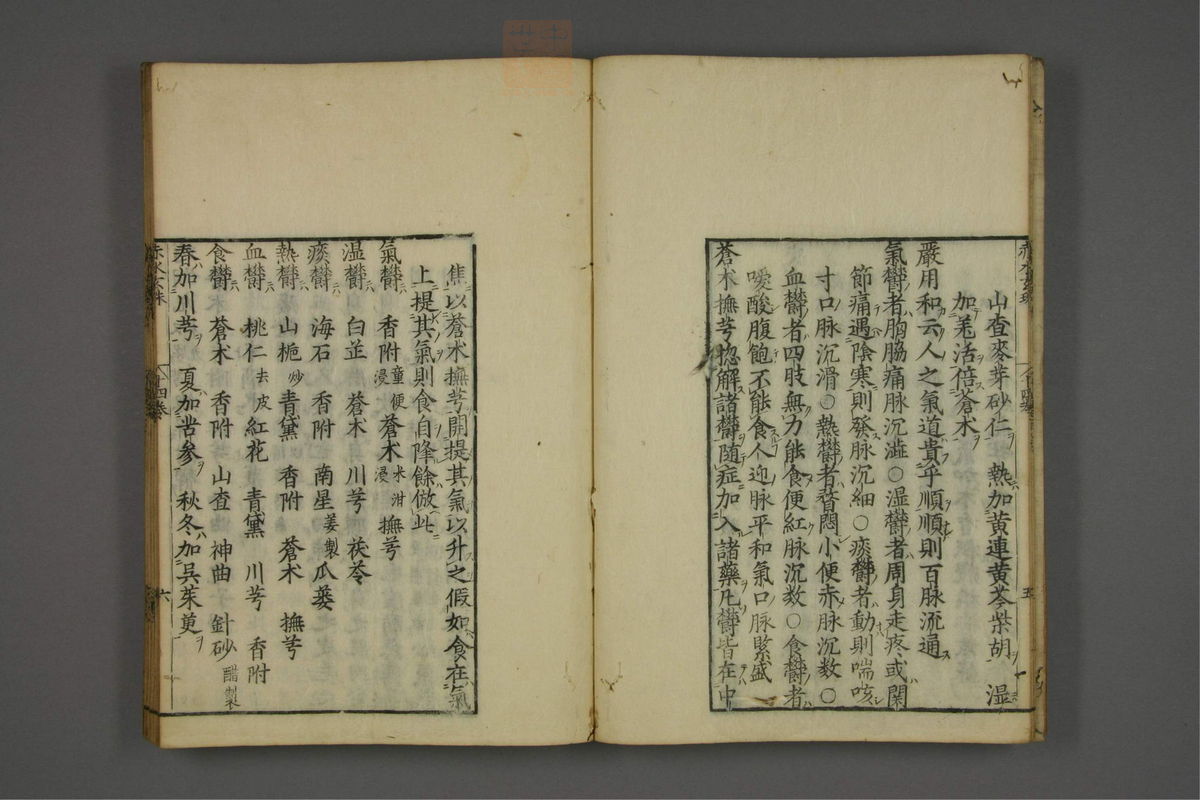 山査麥芽砂仁 熱加黄連黄芩柴胡 湿
加羌活倍蒼术
嚴用和云人之氣道貴乎順順則百脉流通
氣欝者胸脇痛脉沉澁○湿欝者周身走疼或関
節痛遇陰寒則發脉沉細○痰欝者動則喘咳
寸口脉沉滑○熱欝者瞀悶小便赤脉沉数○
血欝者四肢無力能食便紅脉沉数○食欝者
噯酸腹飽不能食人迎脉平和氣口脉緊盛
蒼术撫芎揔解諸欝随症加入諸藥凡欝皆在中
五
焦以蒼术撫芎開提其氣以升之假如食在氣
上提其氣則食自降餘倣此
氣欝 香附童便浸 蒼术米泔浸 撫芎
湿欝 白芷 蒼术 川芎 茯苓
痰欝 海石 香附 南星姜製 瓜蔞
熱欝 山梔炒 青黛 香附 蒼术 撫芎
血欝 桃仁去皮 紅花 青黛 川芎 香附
食欝 蒼术 香附 山査 神曲 針砂醋製
春加川芎 夏加苦参 秋冬加呉茱萸
六